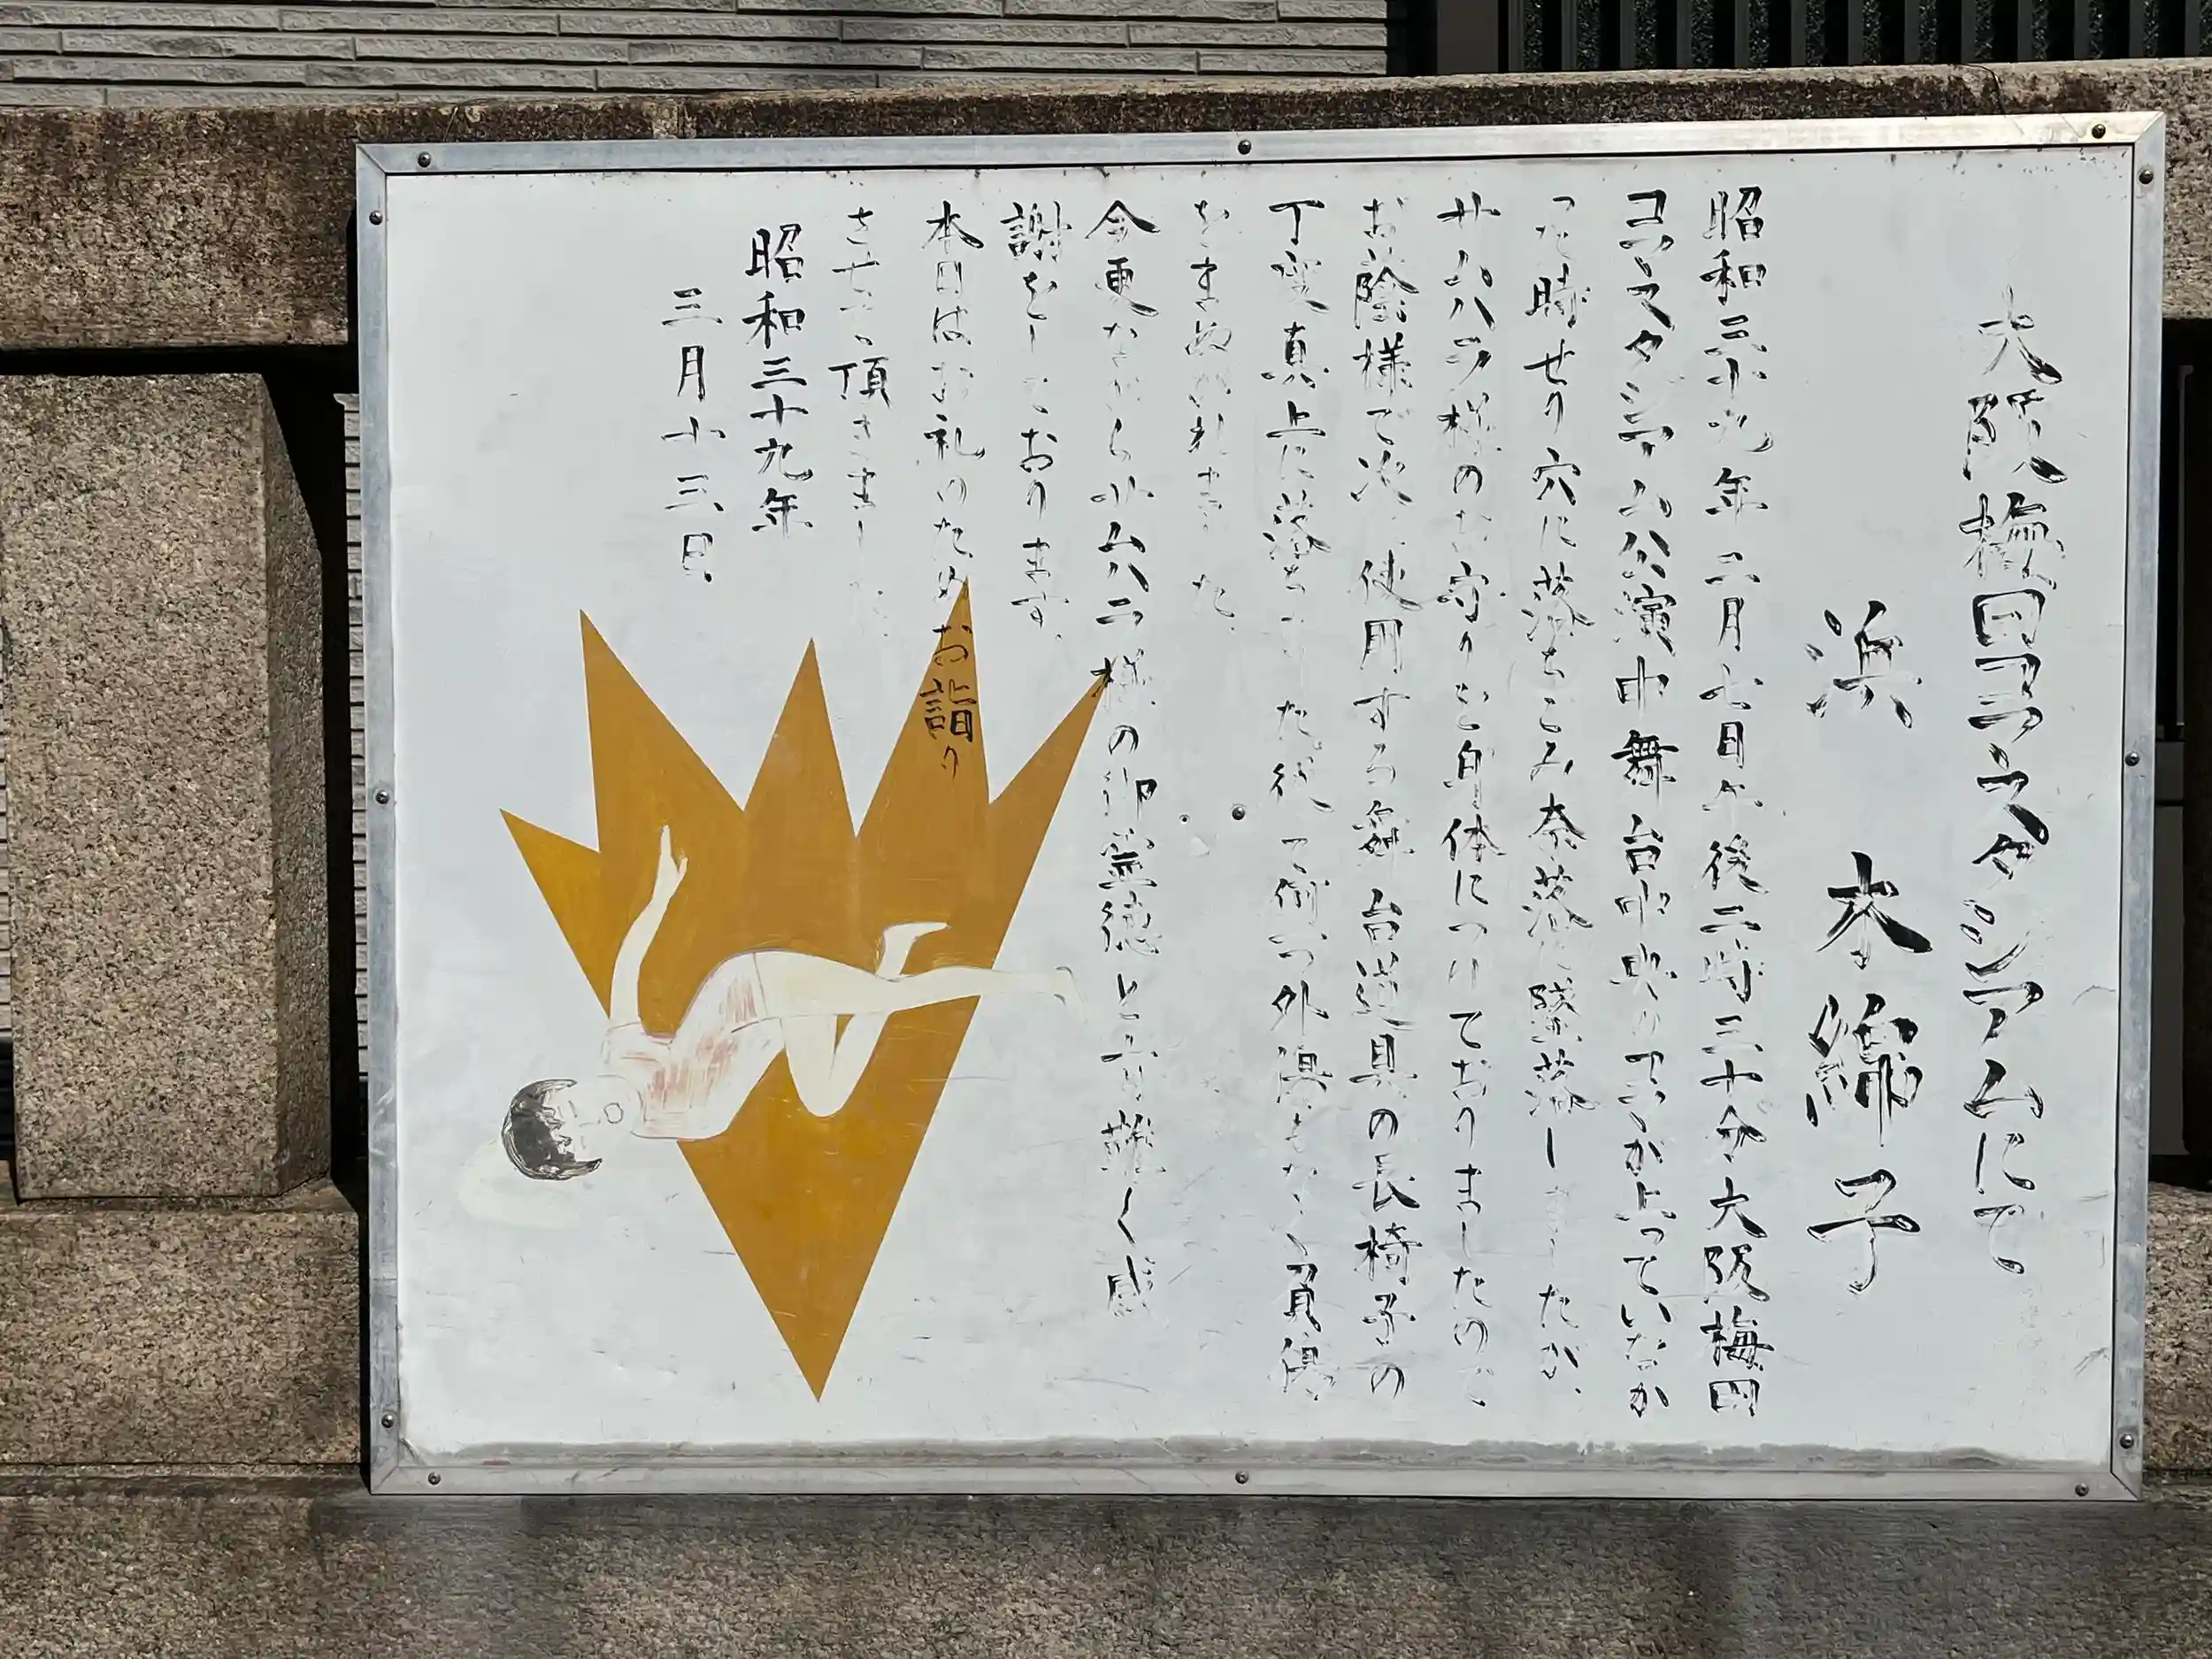 大阪梅田コマスタジアムにて
浜 木綿子
昭和三十九年二月七日午後二時三十分大阪梅田
コマスタジアム公演中舞台中央の
った時せり穴に落ちこみ奈落に墜落しましたが、
サムハラ様のお守りを身体につけておりましたので
お蔭様で次に使用する舞台道具の長椅子の
丁度真上に落ちました後で倒つ外傷もなく負傷
をまぬがれました。
今更ながらサムハラ様の御無徳と有難く感
謝をしております。
本日はお礼のためお詣り
させて頂きました。
昭和三十九年
三月十三日